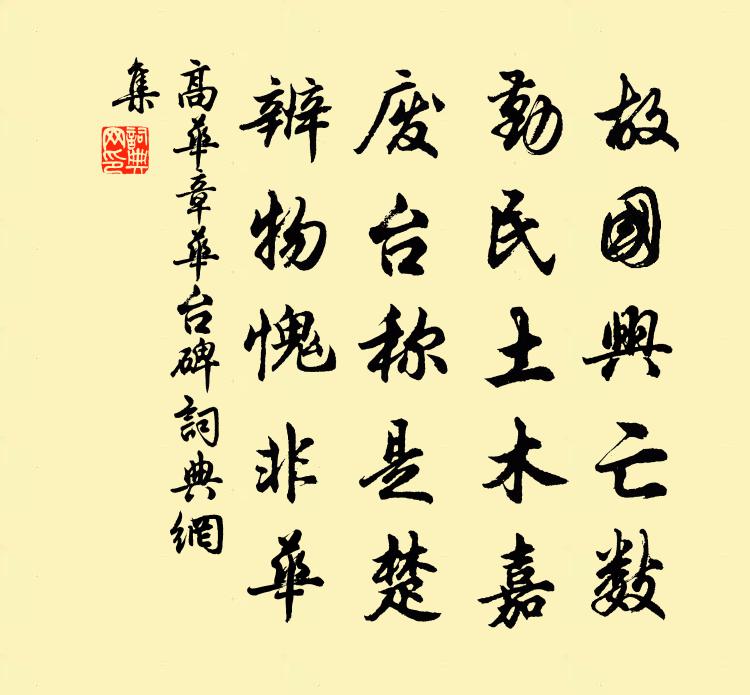 故國興亡数
勤民土木嘉
废台称是楚
辨物愧非華
高華章華台碑詞典網
集
詞典
网印